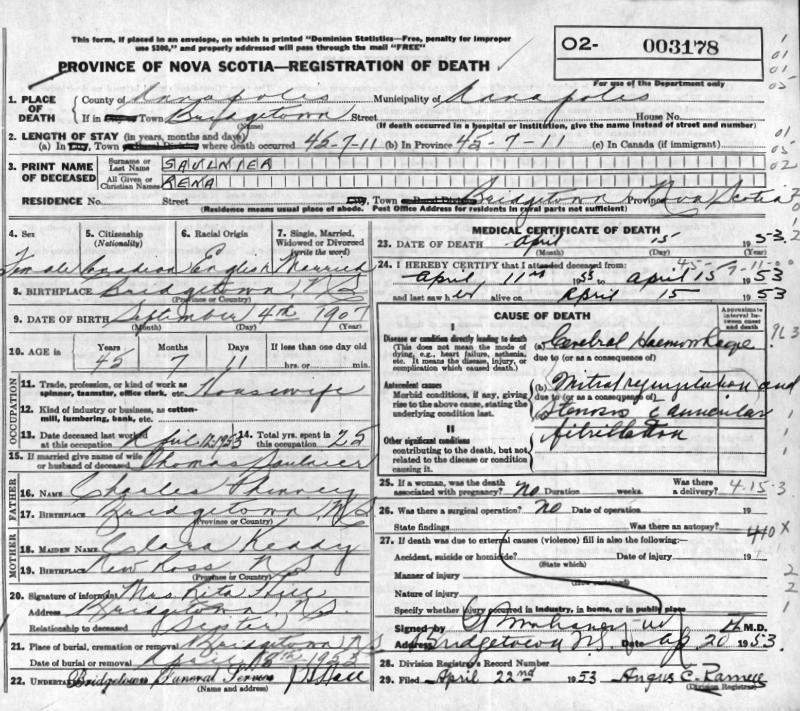 This form, if placed in an envelope, on which is printed "Dominion Statistics—Free, penalty for improper
use $300," and properly addressed will pass through the mail "FREE"
O2- 003178
For use of the Department only
PROVINCE OF NOVA SCOTIA—REGISTRATION OF DEATH
1. PLACE OF DEATH { County of Annapolis Municipality of Annapolis
If in City or Town Bridgetown Street House No.
(Name) (If death occurred in a hospital or institution, give the name instead of street and number)
2. LENGTH OF STAY (in years, months and days)
(a) In City, Town or Rural Division where death occurred 45-7-11 (b) In Province 45-7-11 (c) In Canada (if immigrant)
3. PRINT NAME OF DECEASED { Surname or Last Name SAULNIER
All Given or Christian Names RENA
RESIDENCE No. Street City, Town or Rural Division Bridgetown Province Nova Scotia
(Residence means usual place of abode. Post Office Address for residents in rural parts not sufficient)
4. Sex 5. Citizenship (Nationality) 6. Racial Origin 7. Single, Married, Widowed or Divorced (write the word)
Female Canadian English Married
8. BIRTHPLACE Bridgetown, N.S.
(Province or Country)
9. DATE OF BIRTH September 4th 1907
(Month) (Day) (Year)
10. AGE in Years Months Days If less than one day old
45 7 11 hrs. or min.
OCCUPATION
11. Trade, profession, or kind of work as spinner, teamster, office clerk, etc. Housewife
12. Kind of industry or business, as cotton-mill, lumbering, bank, etc.
13. Date deceased last worked at this occupation April 12 1953 14. Total yrs. spent in this occupation 25
15. If married give name of wife or husband of deceased Thomas Saulnier
FATHER
16. NAME Charles Phinney
17. BIRTHPLACE Bridgetown, N.S.
(Province or Country)
MOTHER
18. MAIDEN NAME Clara Keddy
19. BIRTHPLACE New Ross N.S.
(Province or Country)
20. Signature of informant Mrs Rita Hill
Address Bridgetown, N.S.
Relationship to deceased Sister
21. Place of burial, cremation or removal Bridgetown N.S.
Date of burial or removal April 1953
22. UNDERTAKER Bridgetown Funeral Service
(Name and address)
MEDICAL CERTIFICATE OF DEATH
23. DATE OF DEATH April 15 1953
(Month) (Day)
24. I HEREBY CERTIFY that I attended deceased from:
April 11th 1953 to April 15 1953
and last saw her alive on April 15 1953
CAUSE OF DEATH
Approximate interval between cause and death
I
Disease or condition directly leading to death
(This does not mean the mode of dying, e.g., heart failure, asthenia, etc. It means the disease, injury, or complication which caused death.)
(a) Cerebral Haemorrhage
due to (or as a consequence of)
Antecedent causes
Morbid conditions, if any, giving rise to the above cause, stating the underlying condition last.
(b) Mitral regurgitation and
due to (or as a consequence of)
Stenosis c auricular
fibrillation
II
Other significant conditions
contributing to the death, but not related to the disease or condition causing it.
25. If a woman, was the death associated with pregnancy? no Duration weeks. Was there a delivery?
4-15-3
26. Was there a surgical operation? no Date of operation 19
State findings Was there an autopsy?
27. If death was due to external causes (violence) fill in also the following:
Accident, suicide or homicide? Date of injury 19
(State which)
Manner of injury
(How sustained)
Nature of injury
Specify whether injury occurred in industry, in home, or in public place
Signed by M.D.
Address Bridgetown N.S. Date Ap 20 1953.
28. Division Registrar's Record Number
29. Filed April 22nd 1953 Angus C. Ramey
(Division Registrar)